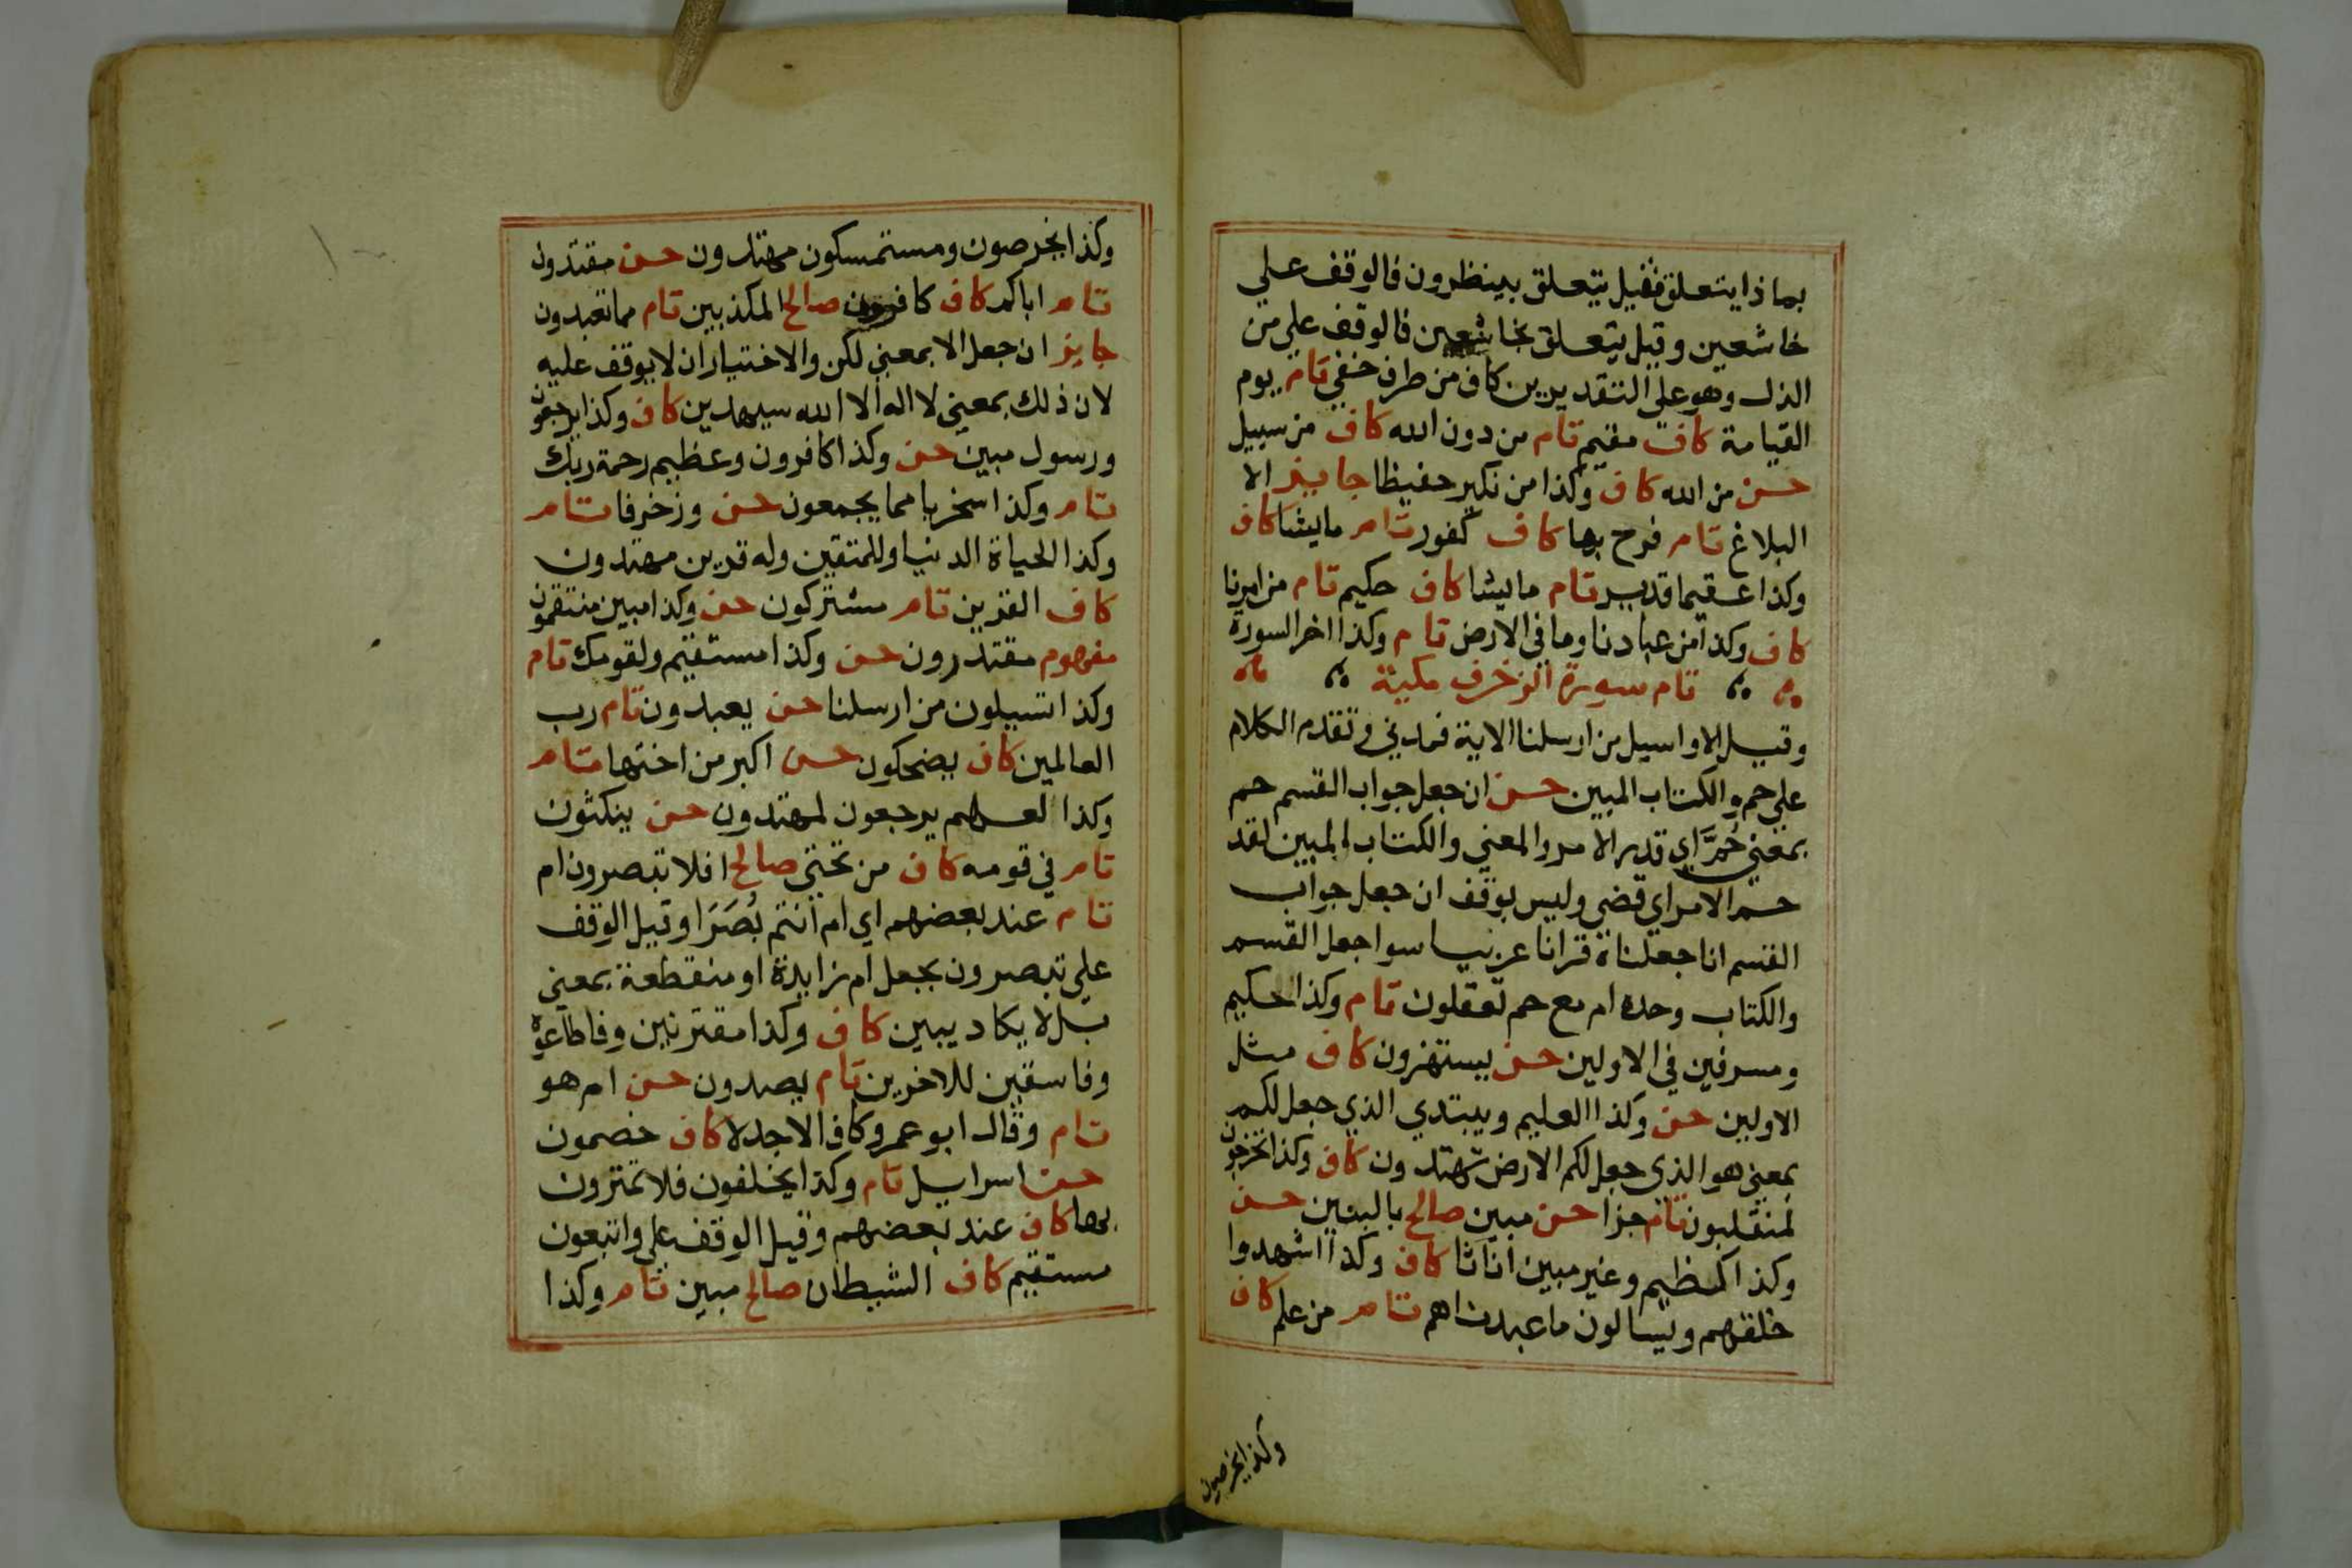 بماذا يتعلق فقيل يتعلق بينظرون فالوقف علي
خاشعين وقيل يتعلق بخاشعين فالوقف علي من
الذل وهو علي التقديرين كاف من طرف خفي تام يوم
القيامة كاف مقيم تام من دون الله كاف من سبيل
حسن من الله كاف وكذا من نكير حفيظا جايز الا
البلاغ تام فرح بها كاف كفور تام ما يشا كاف
وكذا عقيما قدير تام ما يشا كاف حكيم تام من امرنا
كاف وكذا من عبادنا وما في الارض تام وكذا اخر السورة
تام سورة الزخرف مكية
وقيل الا واسيل من ارسلنا الاية فمدني وتقدم الكلام
علي حم والكتاب المبين حسن ان جعل جواب القسم حم
بمعني حُمَّ اي قدر الامر والمعني والكتاب المبين لقد
حم الامر اي قضي وليس بوقف ان جعل جواب
القسم انا جعلناه قرانا عربيا سوا جعل القسم
والكتاب وحده ام مع حم تعقلون تام وكذا حكيم
ومسرفين في الاولين حسن يستهزون كاف مثل
الاولين حسن وكذا العليم ويبتدي الذي جعل لكم
بمعني هو الذي جعل لكم الارض تهتدون كاف وكذا تخرجون
لمنقلبون تام جزا حسن مبين صالح بالبنين حسن
وكذا كظيم وغير مبين اناثا كاف وكذا اشهدوا
خلقهم ويسالون ما عبدناهم تام من علم كاف
وكذا يخرصون
وكذا يخرصون ومستمسكون مهتدون حسن مقتدون
تام اباكم كاف كافرون صالح المكذبين تام مما تعبدون
جايز ان جعل الا بمعني لكن والاختيار ان لا يوقف عليه
لان ذلك بمعني لا اله الا الله سيهدين كاف وكذا يرجعون
ورسول مبين حسن وكذا كافرون وعظيم رحمة ربك
تام وكذا سخريا مما يجمعون حسن وزخرفا تام
وكذا الحياة الدنيا وللمتقين وله قرين مهتدون
كاف القرين تام مشتركون حسن وكذا مبين منتقمون
مفهوم مقتدرون حسن وكذا مستقيم ولقومك تام
وكذا تسيلون من ارسلنا حسن يعبدون تام رب
العالمين كاف يضحكون حسن اكبر من اختها تام
وكذا لعلهم يرجعون لمهتدون حسن ينكثون
تام في قومه كاف من تحتي صالح افلا تبصرون ام
تام عند بعضهم اي ام انتم بُصَرَا وقيل الوقف
علي تبصرون بجعل ام زايدة او منقطعة بمعني
بل لا يكاد يبين كاف وكذا مقترنين وفاطاعوه
وفاسقين للاخرين تام يصدون حسن ام هو
تام وقال ابو عمرو كاف الا جدلا كاف خصمون
حسن اسرايل تام وكذا يخلفون فلا تمترون
بها كاف عند بعضهم وقيل الوقف علي واتبعون
مستقيم كاف الشيطان صالح مبين تام وكذا